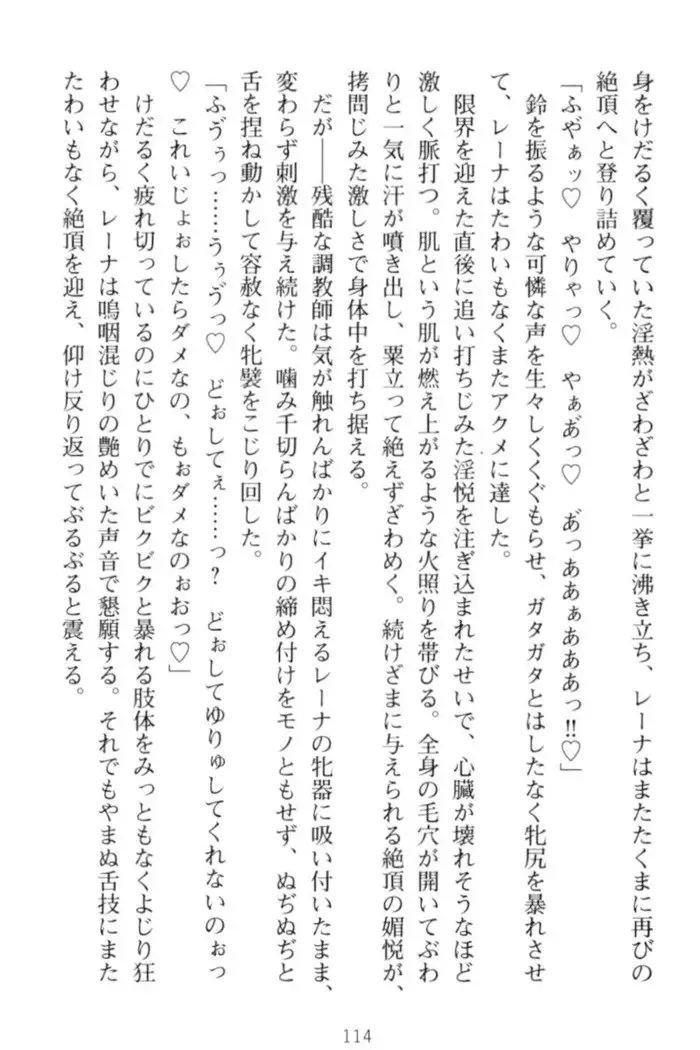 身をけだるく覆っていた淫熱がざわざわと一挙に沸き立ち、レーナはまたたくまに再びの
絶頂へと登り詰めていく。
「ふやぁッ♡　やりゃっ♡　やぁあ゙っ♡　あ゙っああぁあああっ‼♡」
鈴を振るような可憐な声を生々しくくぐもらせ、ガタガタとはしたなく牝尻を暴れさせ
て、レーナはたわいもなくまたアクメに達した。
限界を迎えた直後に追い打ちじみた淫悦を注ぎ込まれたせいで、心臓が壊れそうなほど
激しく脈打つ。肌という肌が燃え上がるような火照りを帯びる。全身の毛穴が開いてぶわ
りと一気に汗が噴き出し、粟立って絶えずざわめく。続けざまに与えられる絶頂の媚悦が、
拷問じみた激しさで身体中を打ち据える。
だが――残酷な調教師は気が触れんばかりにイキ悶えるレーナの牝器に吸い付いたまま、
変わらず刺激を与え続けた。噛み千切らんばかりの締め付けをモノともせず、ぬぢぬぢと
舌を捏ね動かして容赦なく牝襞をこじり回した。
「ふゔぅっ……うぅゔっ♡　どぉしてぇ……っ？　どぉしてゆりゅしてくれないのぉっ
♡　これいじょぉしたらダメなの、もぉダメなのぉおっ♡」
けだるく疲れ切っているのにひとりでにビクビクと暴れる肢体をみっともなくよじり狂
わせながら、レーナは嗚咽混じりの艶めいた声音で懇願する。それでもやまぬ舌技にまた
たわいもなく絶頂を迎え、仰け反り返ってぶるぶると震える。
114